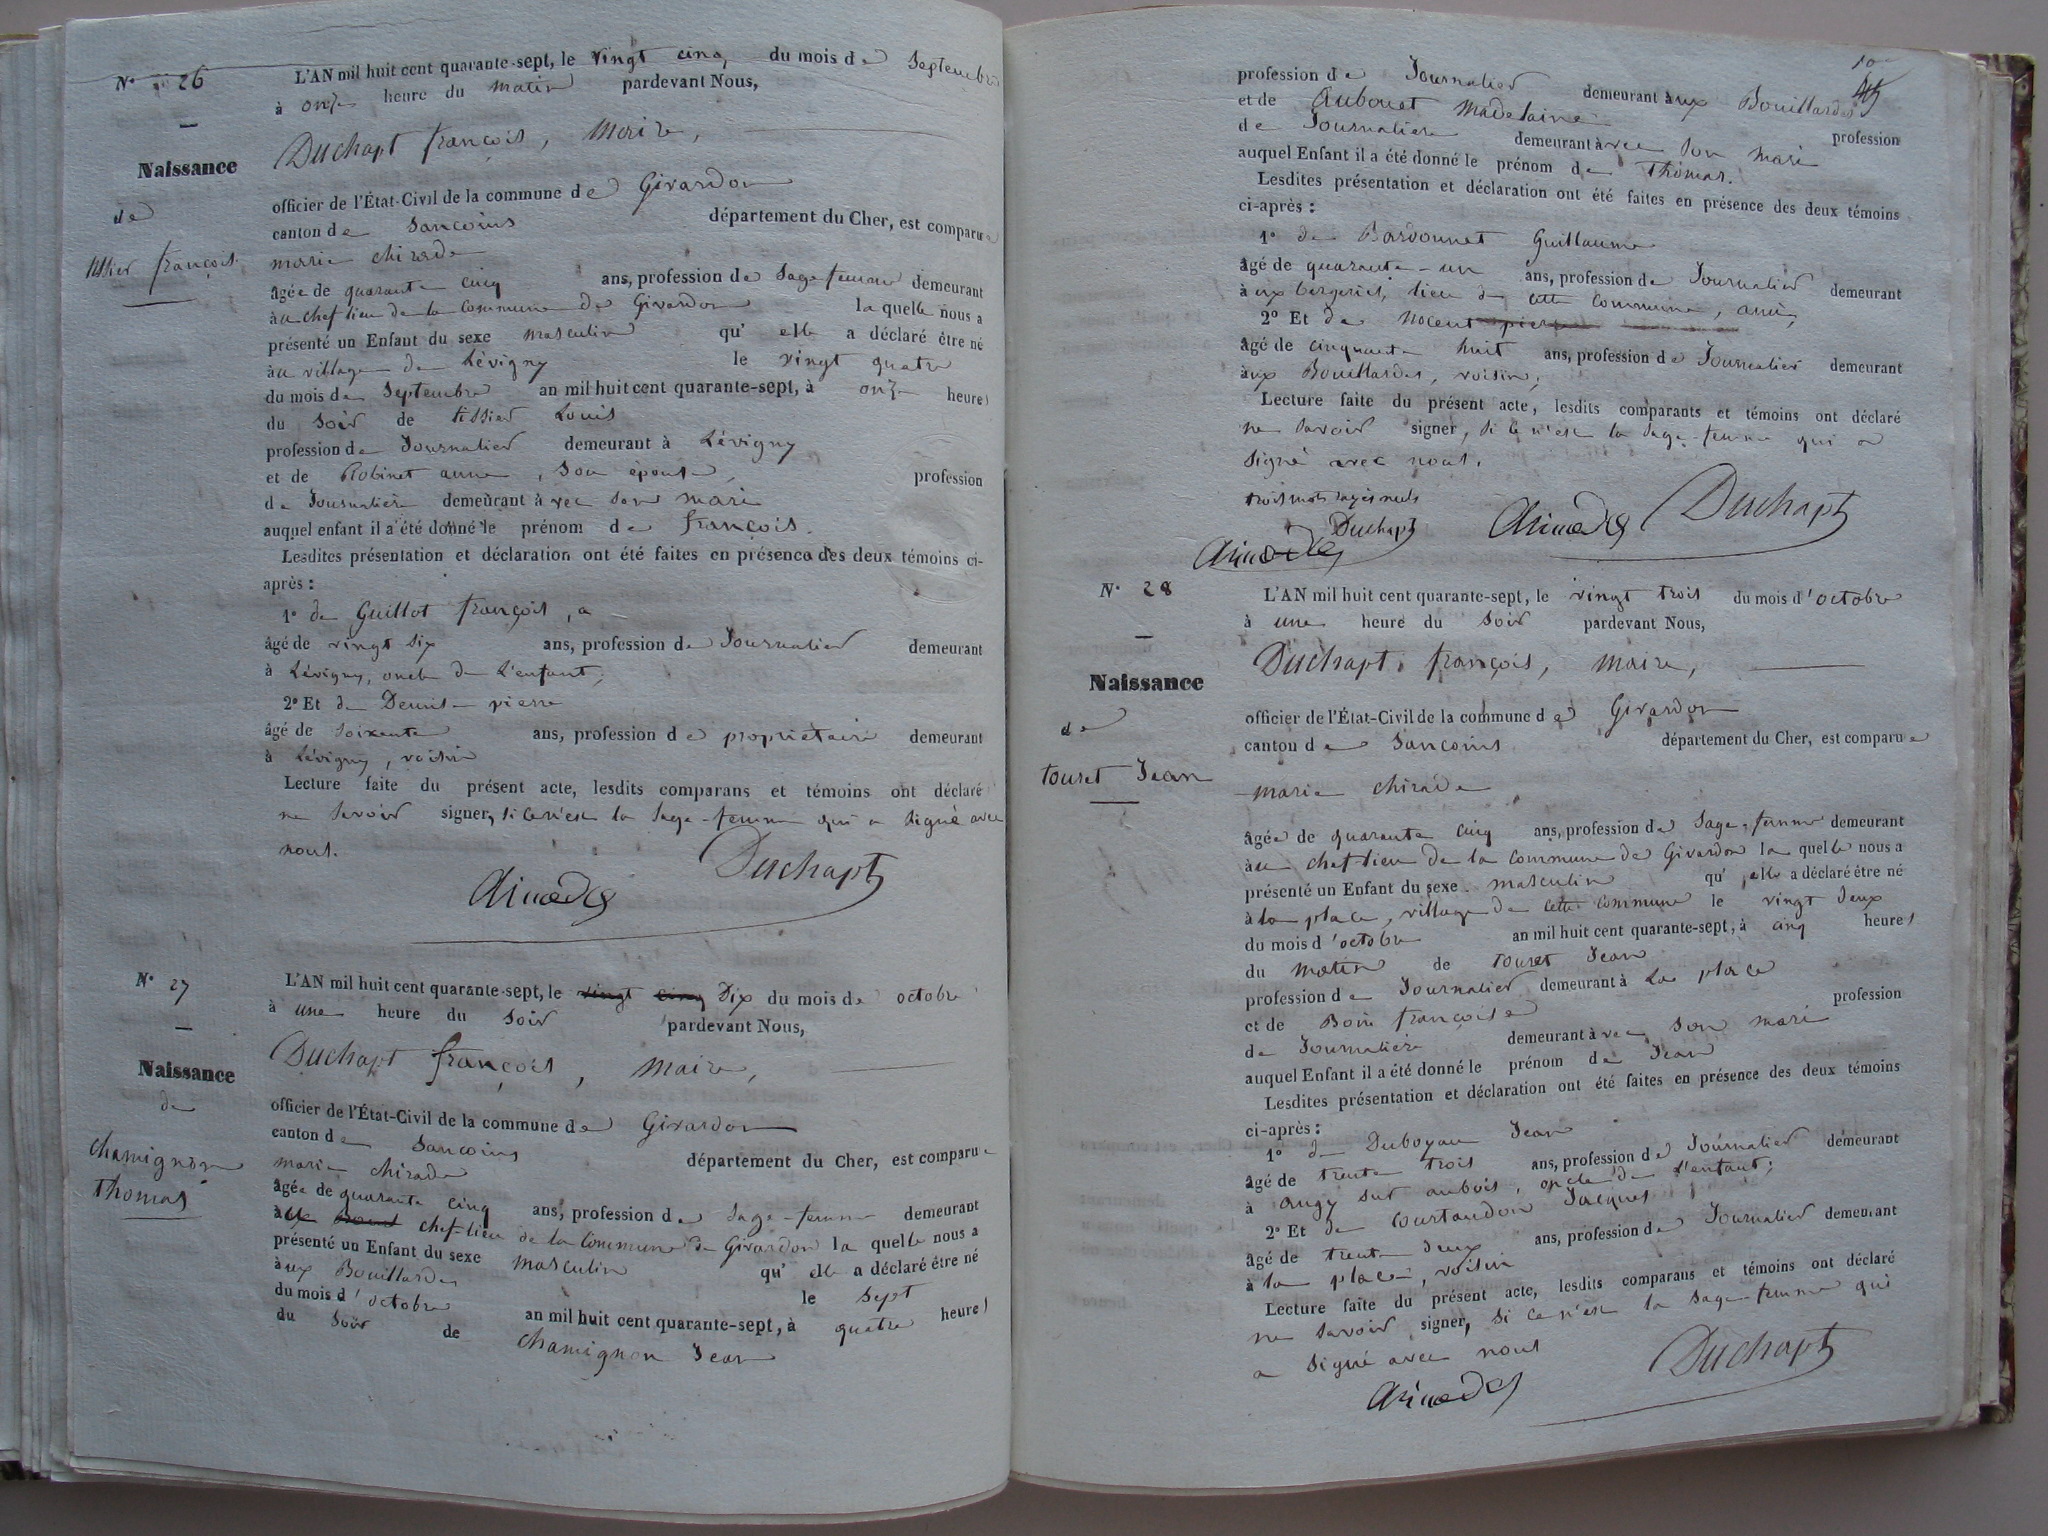 N° 26
L'AN mil huit cent quarante-sept, le vingt cinq du mois de Septembre
à onze heure du matin pardevant Nous,
Duchapt françois, Maire,
Naissance
de
tissier françois
officier de l'État-Civil de la commune de Givardon
canton de Sancoins département du Cher, est comparue
marie chirade
âgée de quarante cinq ans, profession de Sage femme demeurant
à au chef lieu de la commune de Givardon la quelle nous a
présenté un Enfant du sexe masculin qu' elle a déclaré être né
à au village de Lévigny le vingt quatre
du mois de Septembre an mil huit cent quarante-sept, à onze heures
du soir de tissier Louis
profession de Journalier demeurant à Lévigny
et de Robinet anne, son épouse, profession
de Journalière demeurant à vec son mari
auquel enfant il a été donné le prénom de françois.
Lesdites présentation et déclaration ont été faites en présence des deux témoins ci-
après :
1° de Guillot françois, a
âgé de vingt six ans, profession de Journalier demeurant
à Lévigny, oncle de L'enfant;
2° Et de pierre
âgé de soixante ans, profession de propriétaire demeurant
à Lévigny, voisin
Lecture faite du présent acte, lesdits comparans et témoins ont déclaré
ne savoir signer, si ce n'est la sage-femme qui a signé avec
nous.
Duchapt
N° 27
L'AN mil huit cent quarante-sept, le vingt cinq Dix du mois de octobre
à une heure du soir pardevant Nous,
Duchapt françois, maire,
Naissance
de
chamignon
Thomas
officier de l'État-Civil de la commune de Givardon
canton de Sancoins département du Cher, est comparue
marie chirade
âgée de quarante cinq ans, profession de sage-femme demeurant
à chef-lieu de la commune de Givardon la quelle nous a
présenté un Enfant du sexe masculin qu' elle a déclaré être né
à ux Bouillardes le sept
du mois d'octobre an mil huit cent quarante-sept, à quatre heures
du soir de chamignon Jean
10
profession de Journalier demeurant à ux Bouillardes
et de Aubouet Madelaine profession
de Journalière demeurant à vec son mari
auquel Enfant il a été donné le prénom de Thomas.
Lesdites présentation et déclaration ont été faites en présence des deux témoins
ci-après :
1° de Bardonnet Guillaume
âgé de quarante-un ans, profession de Journalier demeurant
à ux bergeries, lieu de cette commune, ami,
2° Et de Nocent pierre
âgé de cinquante huit ans, profession de Journalier demeurant
à ux Bouillardes, voisin,
Lecture faite du présent acte, lesdits comparants et témoins ont déclaré
ne savoir signer, si ce n'est la sage-femme qui a
signé avec nous.
trois mots rayés nuls
Duchapt Duchapt
N° 28
L'AN mil huit cent quarante-sept, le vingt trois du mois d'octobre
à une heure du soir pardevant Nous,
Duchapt françois, maire,
Naissance
de
touret Jean
officier de l'État-Civil de la commune de Givardon
canton de Sancoins département du Cher, est comparue
marie chirade
âgée de quarante cinq ans, profession de sage-femme demeurant
à au chef lieu de la commune de Givardon la quelle nous a
présenté un Enfant du sexe masculin qu' elle a déclaré être né
à la place, village de cette commune le vingt deux
du mois d'octobre an mil huit cent quarante-sept, à cinq heures
du matin de touret Jean
profession de Journalier demeurant à La place
et de françoise profession
de Journalière demeurant à vec son mari
auquel Enfant il a été donné le prénom de Jean
Lesdites présentation et déclaration ont été faites en présence des deux témoins
ci-après :
1° de Duboyau Jean
âgé de trente trois ans, profession de Journalier demeurant
à augy sur aubois, oncle de L'enfant;
2° Et de Courtaudon Jacques
âgé de trente deux ans, profession de Journalier demeurant
à la place, voisin
Lecture faite du présent acte, lesdits comparans et témoins ont déclaré
ne savoir signer, si ce n'est la sage-femme qui
a signé avec nous
Duchapt